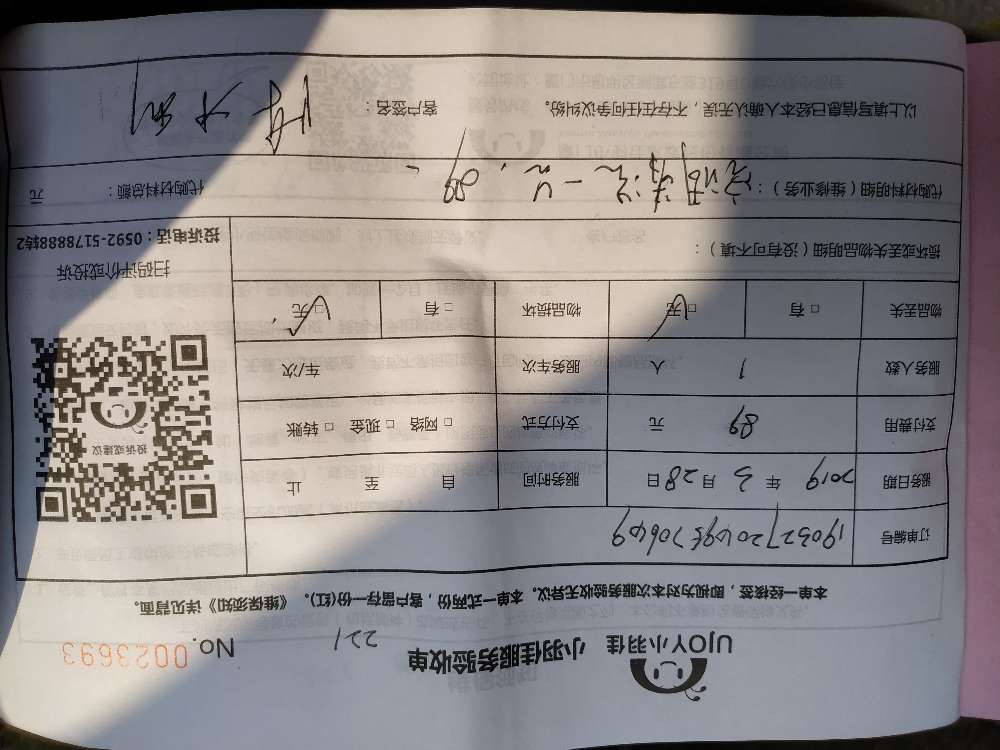 UJOY小羽佳 小羽佳服务验收单 221 No. 0023693
本单一经接签，即视为对本次服务验收无异议。本单一式两份，客户留存一份(红)。《维保须知》详见背面。
订单编号
服务日期 2019 年 3 月 28 日 服务时间 自 至 止
支付费用 89 元 支付方式 □ 网络 □ 现金 □ 转账
服务人数 1 人 服务车次 车/次
物品丢失 □ 有 □ 无 物品损坏 □ 有 □ 无
投诉或建议
损坏或丢失物品明细（没有可不填）：
扫码评价或投诉
投诉电话：0592-5178888转2
代购材料明细（维修业务）： 89 代购材料总额： 元
以上填写信息已经本人确认无误，不存在任何争议纠纷。 客户签名：